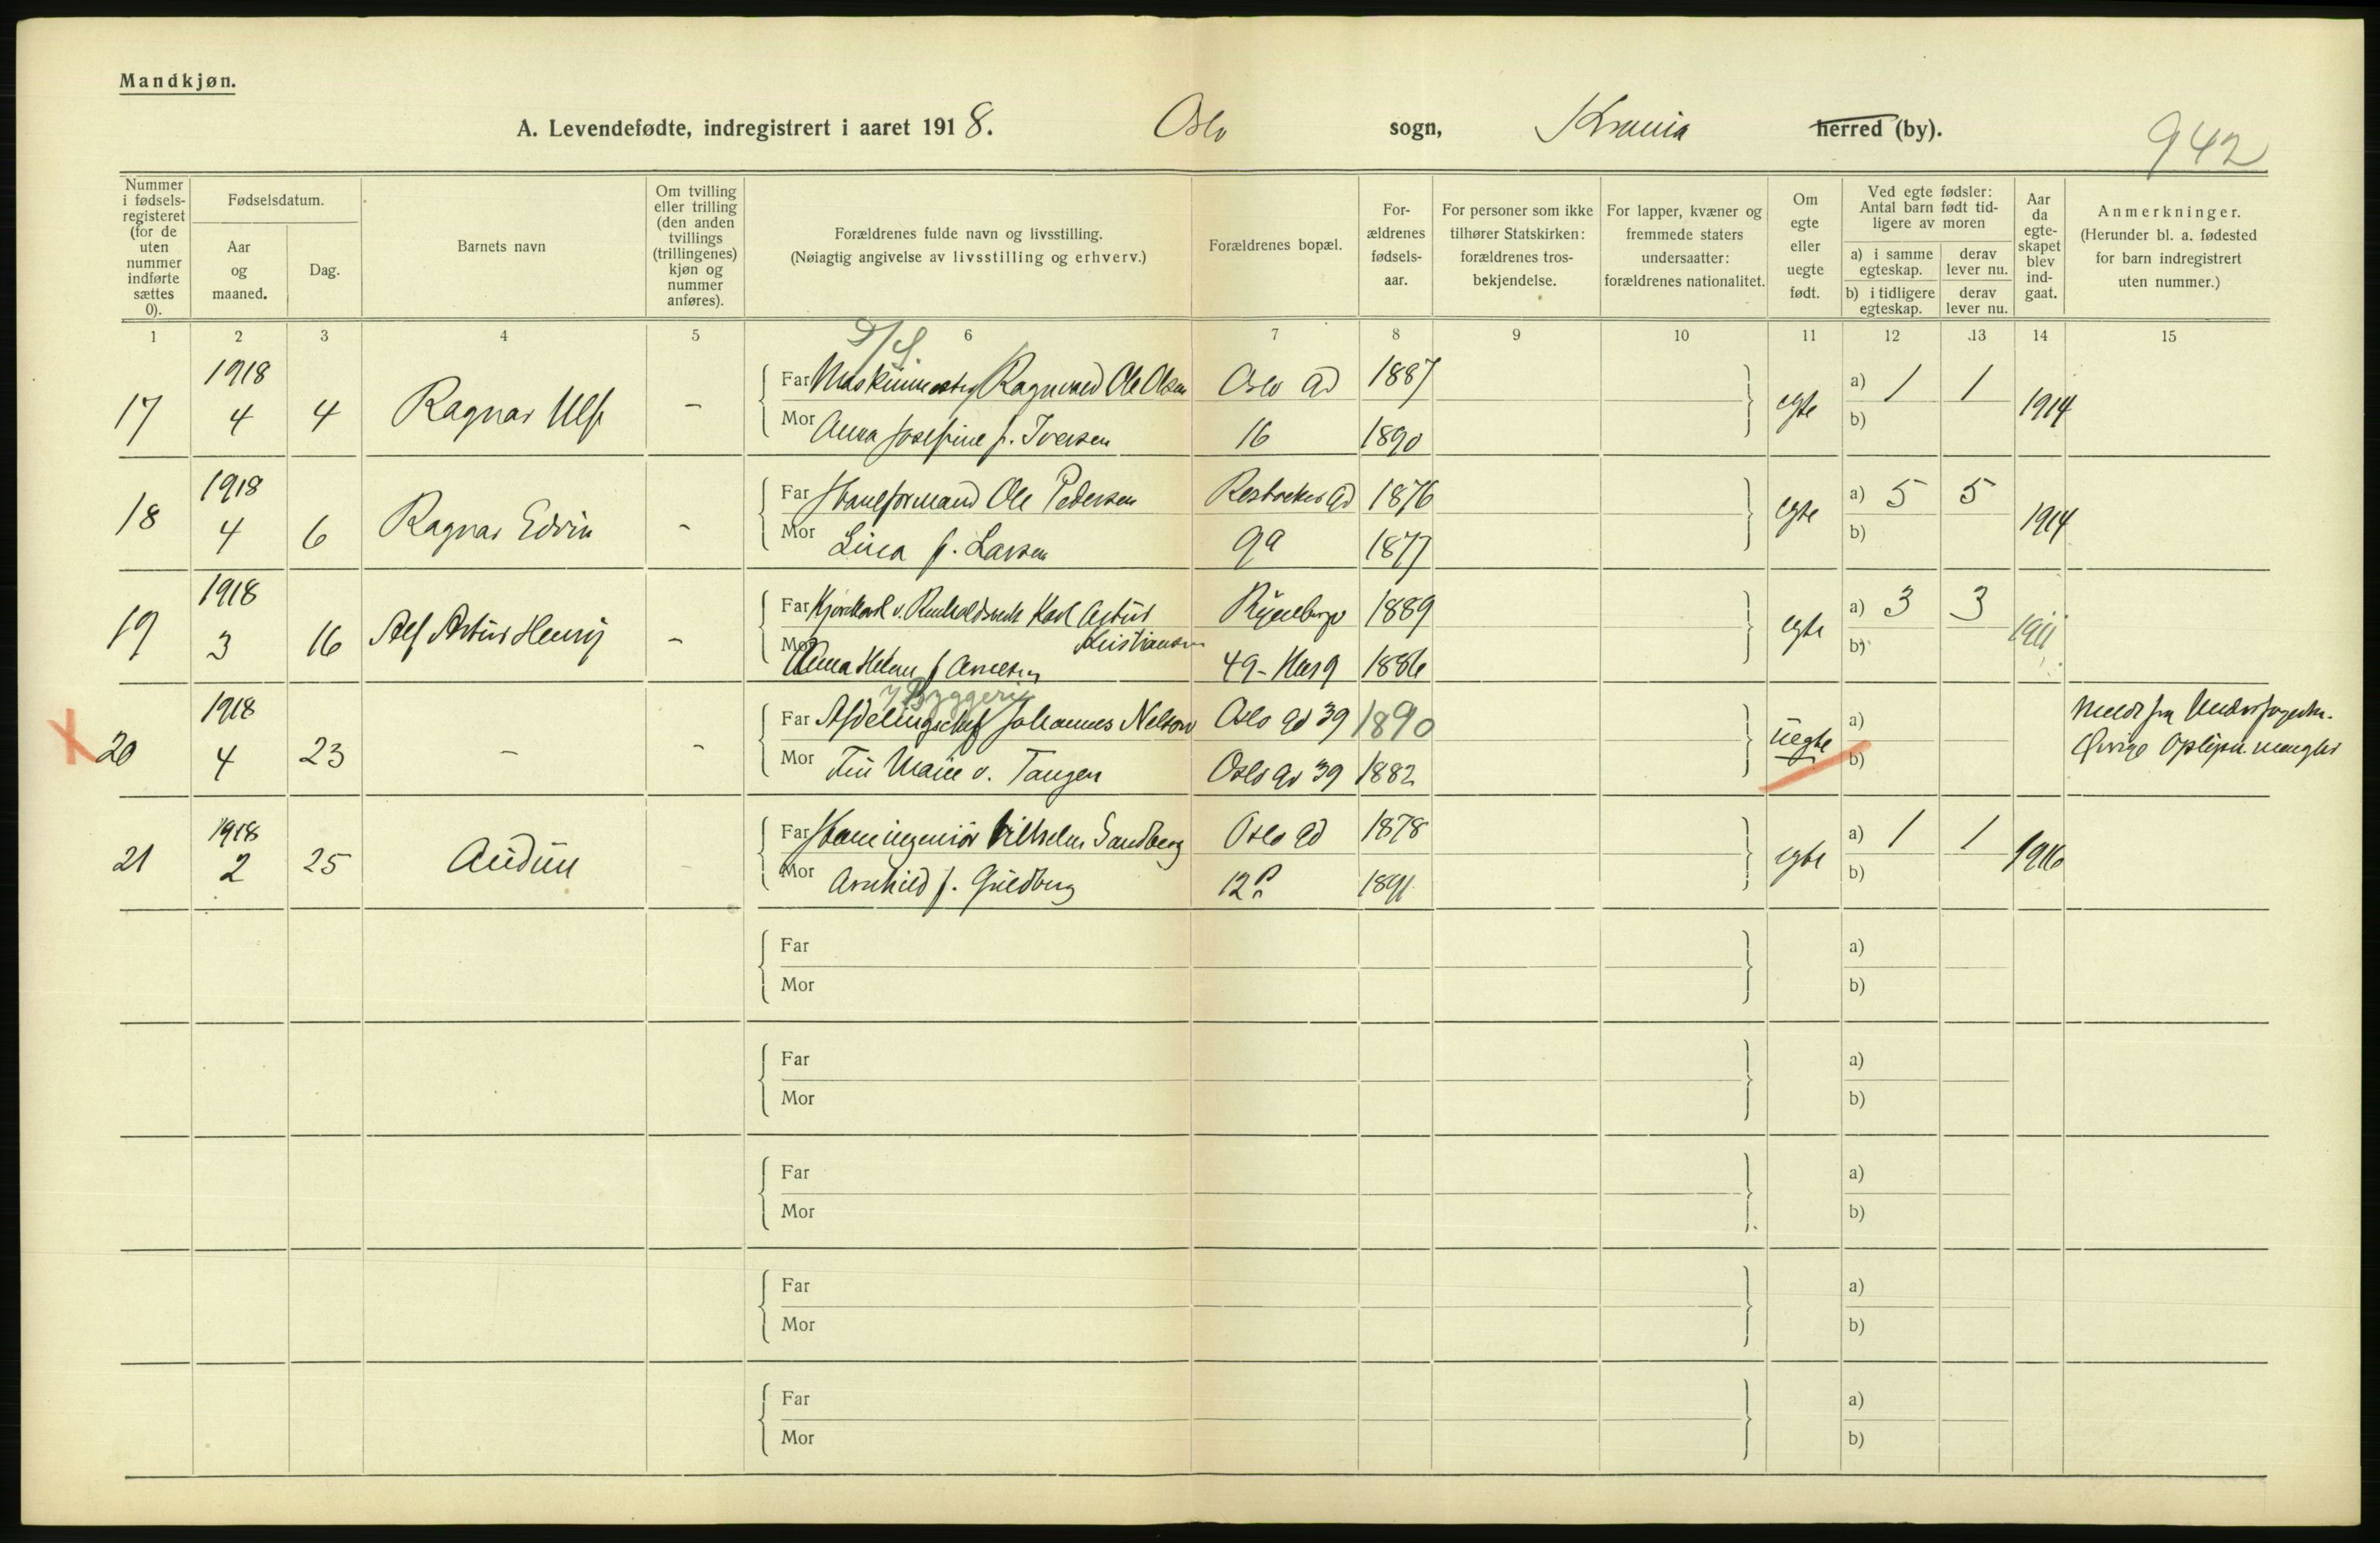 Mandkjøn.
A. Levendefødte, indregistrert i aaret 1918. Oslo sogn, Krania herred (by).
942
Nummer i fødsels-registeret (for de uten nummer indførte sættes 0).
Fødselsdatum.
Aar og maaned.
Dag.
Barnets navn
Om tvilling eller trilling (den anden tvillings (trillingenes) kjøn og nummer anføres).
Forældrenes fulde navn og livsstilling.
(Nøiagtig angivelse av livsstilling og erhverv.)
Forældrenes bopæl.
For-ældrenes fødsels-aar.
For personer som ikke tilhører Statskirken: forældrenes tros-bekjendelse.
For lapper, kvæner og fremmede staters undersaatter: forældrenes nationalitet.
Om egte eller uegte født.
Ved egte fødsler: Antal barn født tid-ligere av moren
a) i samme egteskap.
derav lever nu.
b) i tidligere egteskap.
derav lever nu.
Aar da egte-skapet blev ind-gaat.
Anmerkninger.
(Herunder bl. a. fødested for barn indregistrert uten nummer.)
1 2 3 4 5 6 7 8 9 10 11 12 13 14 15
D/S.
17 1918 4 4 Ragnar Ulf - Far Maskinmester Ragnvald Ole Olsen Oslo gd 1887 egte a) 1 1 1914
Mor Anna Josefine f. Iversen 16 1890 b)
18 1918 4 6 Ragnar Edvin - Far Ole Pedersen gd 1876 egte a) 5 5 1914
Mor Lina f. Larsen 9a 1877 b)
19 1918 3 16 Alf Artur Henry - Far Kjørekarl v. Renholdsverk Karl Artur Kristiansen Ryenberg 1889 egte a) 3 3 1911
Mor Anna Helene f Arnesen 49- Hus 9 1886 b)
i Byggeri
X 20 1918 4 23 - - Far Afdelingschef Johannes Nelson Oslo gd 39 1890 uegte a) Meldt fra
Mor Marie v. Tangen Oslo gd 39 1882 b) Øvrige Oplysn. mangler
21 1918 2 25 Audun - Far Vilhelm Sandberg Oslo gd 1878 egte a) 1 1 1916
Mor Arnhild f. Guldberg 12 1891 b)
Far a)
Mor b)
Far a)
Mor b)
Far a)
Mor b)
Far a)
Mor b)
Far a)
Mor b)